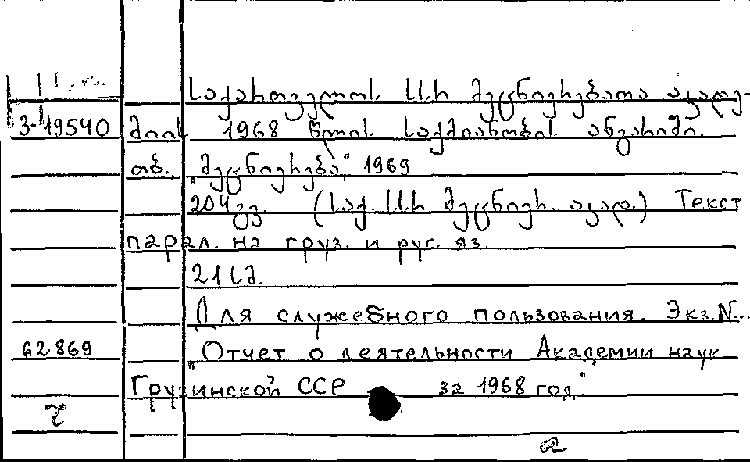 საქართველოს სსრ მეცნიერებათა აკადე-
3-19540 მიის 1968 წლის საქმიანობის ანგარიში.
თბ. „მეცნიერება“ 1969
204 გვ. (საქ. სსრ მეცნიერ. აკად.) Текст
парал. на груз. и рус. яз
21 სმ.
Для служебного пользования. Экз. N...
62.869 "Отчет о деятельности Академии наук
Грузинской ССР за 1968 год"